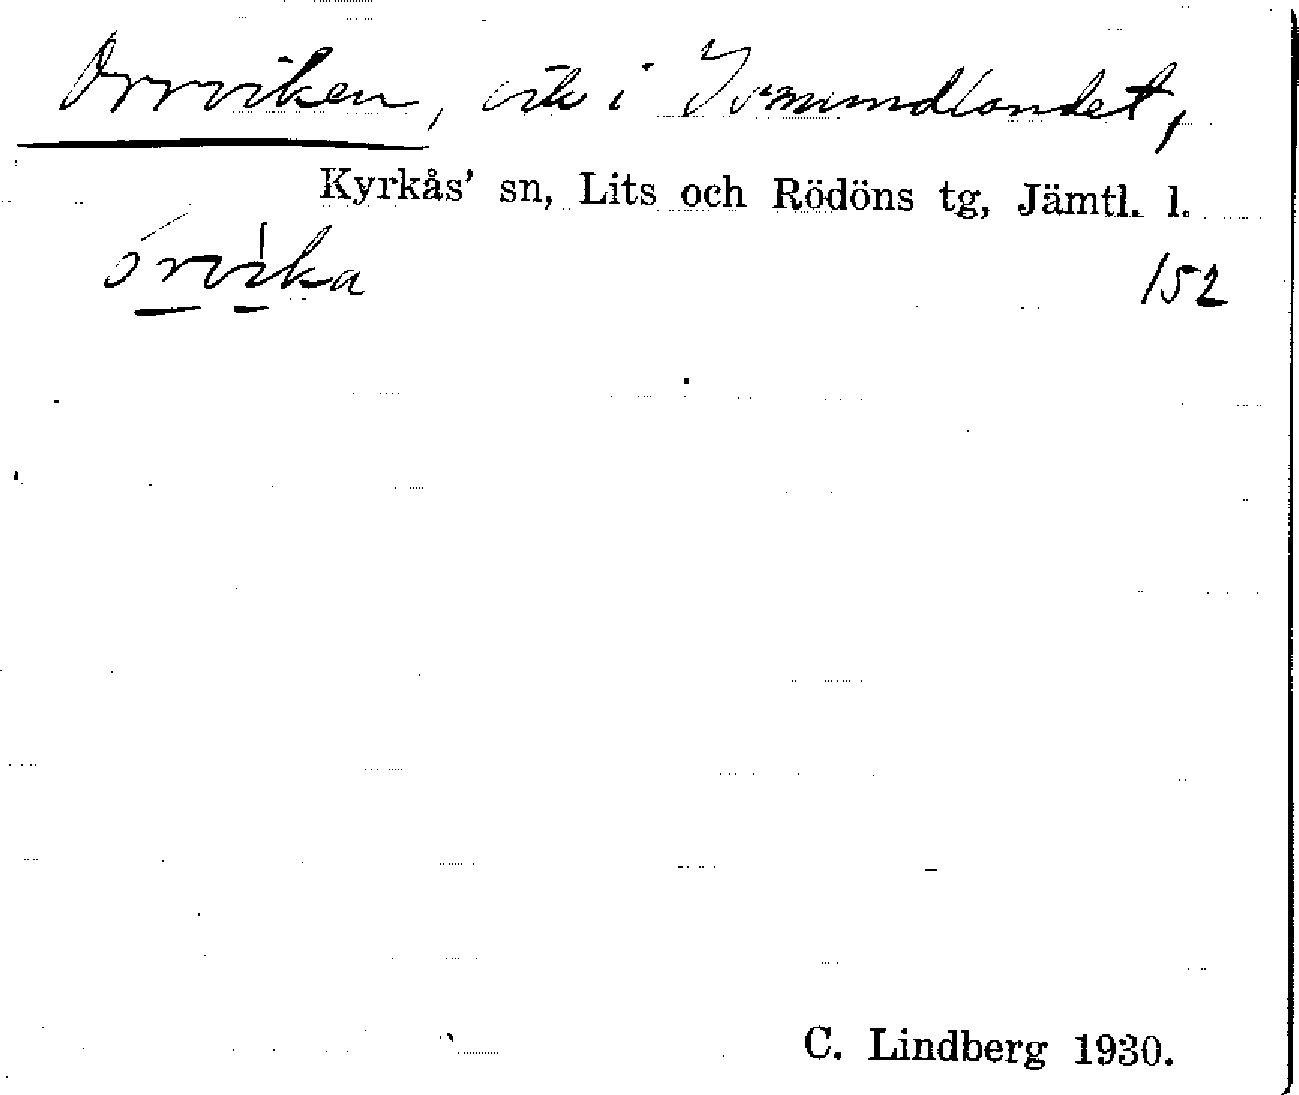 Orrviken, vik i Ismundlandet,
Kyrkås' sn, Lits och Rödöns tg, Jämtl. l.
orvika
152
C. Lindberg 1930.